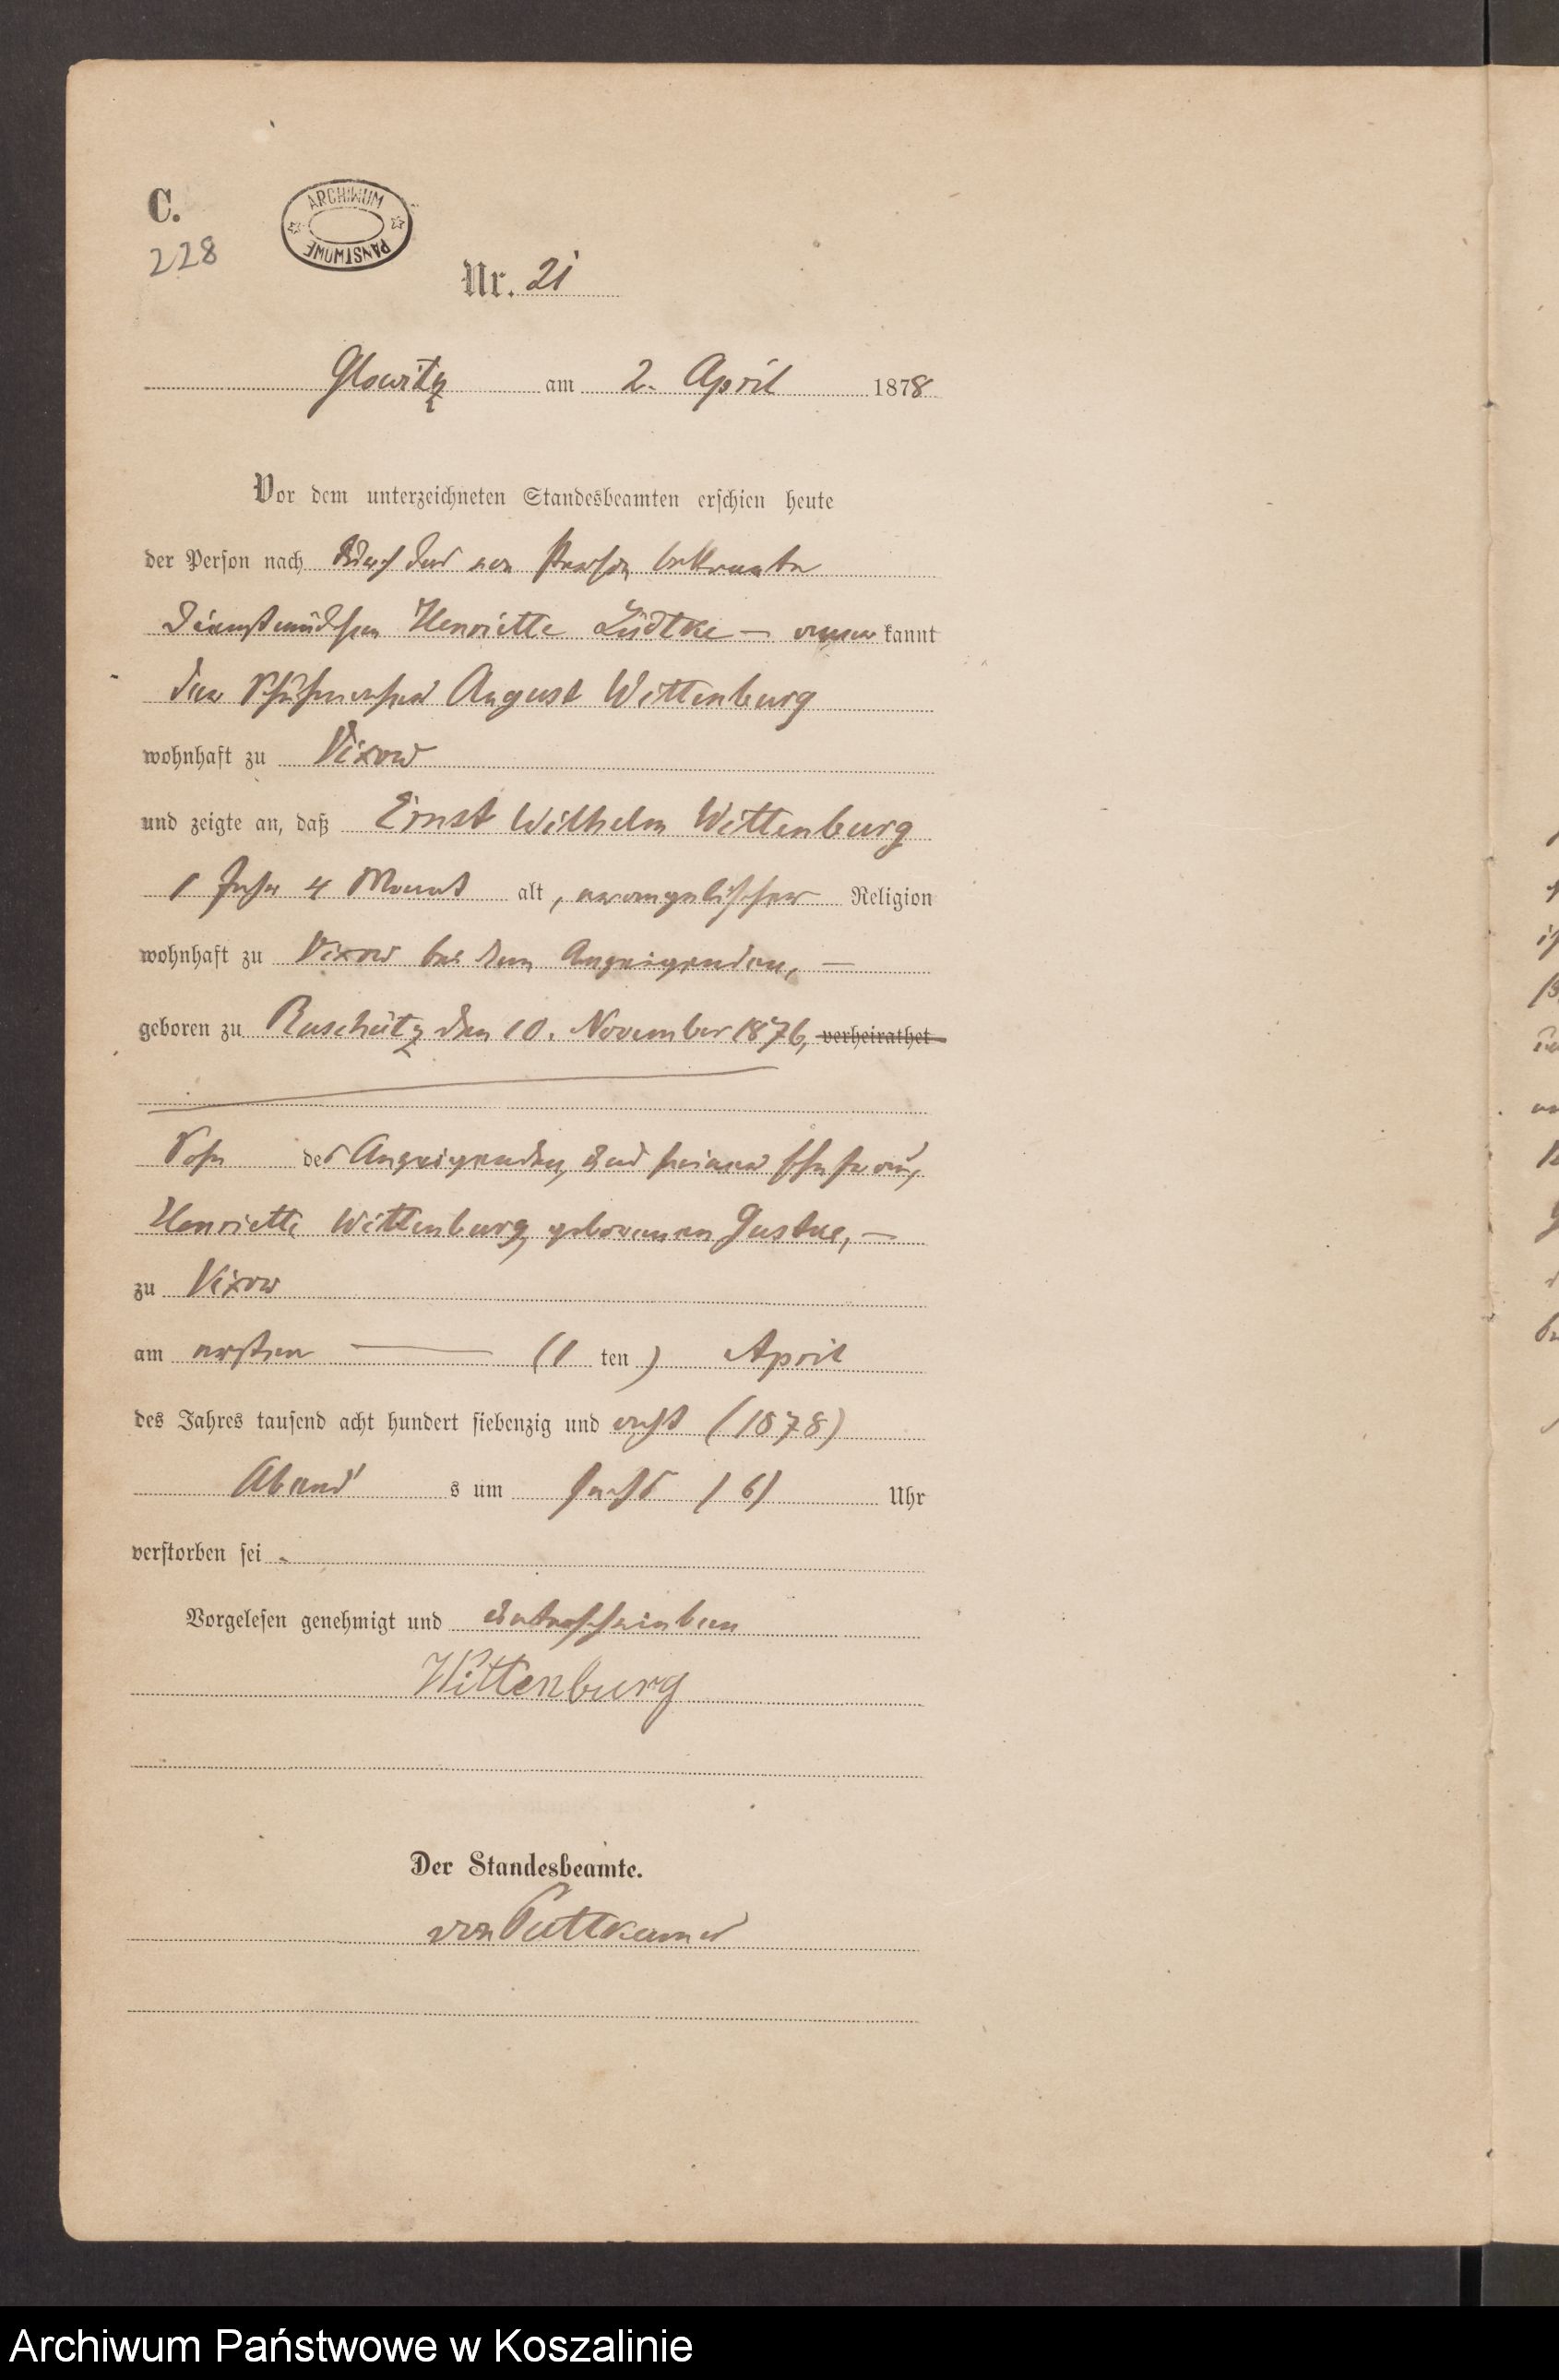 C.
228
ARCHIWUM PAŃSTWOWE
Nr. 21
Glowitz am 2. April 1878
Vor dem unterzeichneten Standesbeamten erschien heute
der Person nach durch die von Person bekannte
Dienstmädchen Henriette Lüdtke — anerkannt
der Schuhmacher August Wittenburg
wohnhaft zu Vixow
und zeigte an, daß Ernst Wilhelm Wittenburg
1 Jahr 4 Monat alt, evangelischer Religion
wohnhaft zu Vixow bei dem Anzeigenden, —
geboren zu Ruschütz den 10. November 1876, verheirathet
Sohn des Anzeigenden, und seiner Ehefrau,
Henriette Wittenburg, geborenen —
zu Vixow
am ersten — (1 ten) April
des Jahres tausend acht hundert siebenzig und acht (1878)
Abend s um sechs (6) Uhr
verstorben sei.
Vorgelesen genehmigt und unterschrieben
Wittenburg
Der Standesbeamte.
von Puttkamer
Archiwum Państwowe w Koszalinie